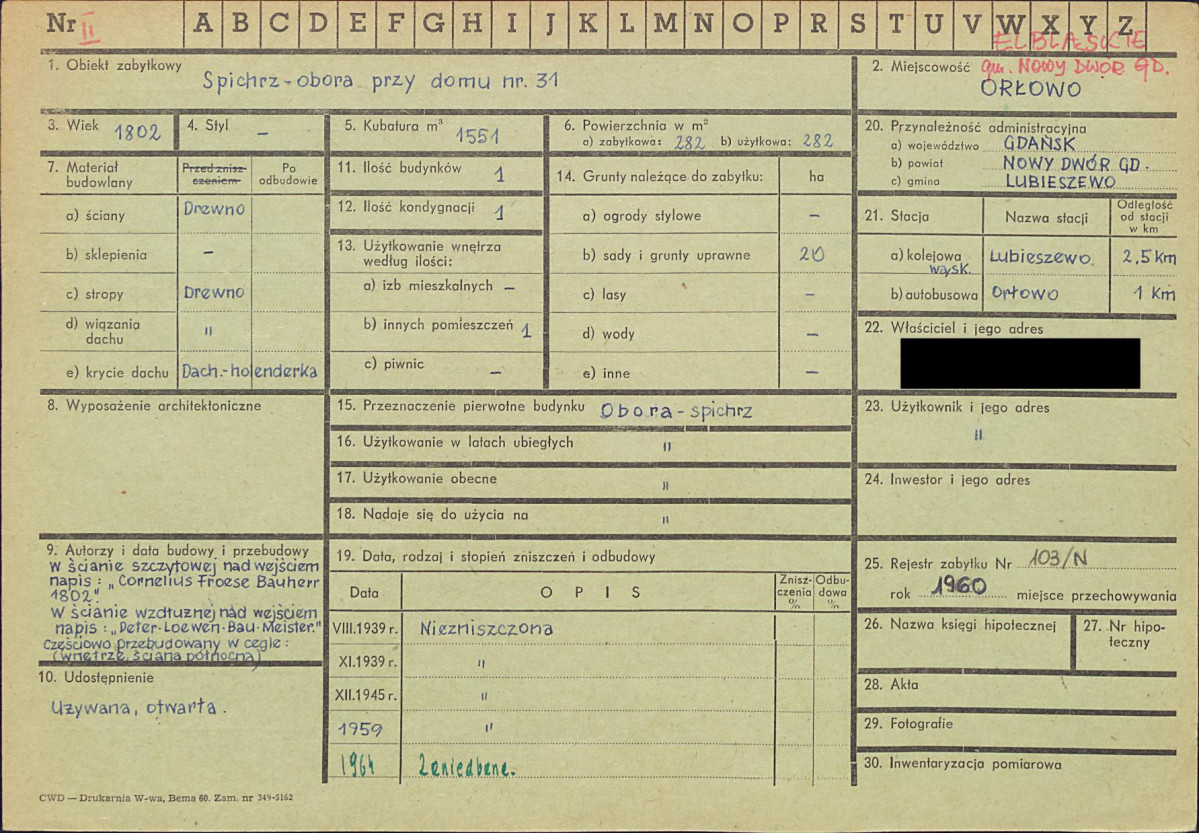 Nr II A B C D E F G H I J K L M N O P R S T U V W X Y Z
ELBLĄSKIE
1. Obiekt zabytkowy
Spichrz-obora przy domu nr. 31
2. Miejscowość gm. NOWY DWÓR GD.
ORŁOWO
3. Wiek 1802
4. Styl –
5. Kubatura m³ 1551
6. Powierzchnia w m²
a) zabytkowa: 282 b) użytkowa: 282
7. Materiał budowlany
Przed zniszczeniem
Po odbudowie
a) ściany Drewno
b) sklepienia –
c) stropy Drewno
d) wiązania dachu "
e) krycie dachu Dach.-holenderka
8. Wyposażenie architektoniczne
9. Autorzy i data budowy i przebudowy
W ścianie szczytowej nad wejściem
napis: „Cornelius Froese Bauherr
1802."
W ścianie wzdłużnej nad wejściem
napis: „Peter-Loewen-Bau-Meister."
Częściowo przebudowany w cegle:
(wnętrze, ściana północna)
10. Udostępnienie
Używana, otwarta.
11. Ilość budynków 1
12. Ilość kondygnacji 1
13. Użytkowanie wnętrza
według ilości:
a) izb mieszkalnych –
b) innych pomieszczeń 1
c) piwnic –
14. Grunty należące do zabytku: ha
a) ogrody stylowe –
b) sady i grunty uprawne 20
c) lasy –
d) wody –
e) inne –
15. Przeznaczenie pierwotne budynku Obora-spichrz
16. Użytkowanie w latach ubiegłych "
17. Użytkowanie obecne "
18. Nadaje się do użycia na "
19. Data, rodzaj i stopień zniszczeń i odbudowy
Data OPIS Zniszczenia % Odbudowa %
VIII.1939 r. Niezniszczona
XI.1939 r. "
XII.1945 r. "
1959 "
1964 Zaniedbane.
20. Przynależność administracyjna
a) województwo GDAŃSK
b) powiat NOWY DWÓR GD.
c) gmina LUBIESZEWO
21. Stacja Nazwa stacji Odległość od stacji w km
a) kolejowa wąsk. Lubieszewo 2,5 Km
b) autobusowa Orłowo 1 Km
22. Właściciel i jego adres
23. Użytkownik i jego adres
"
24. Inwestor i jego adres
25. Rejestr zabytku Nr 103/N
rok 1960 miejsce przechowywania
26. Nazwa księgi hipotecznej
27. Nr hipoteczny
28. Akta
29. Fotografie
30. Inwentaryzacja pomiarowa
CWD — Drukarnia W-wa, Bema 60. Zam. nr 349-5162